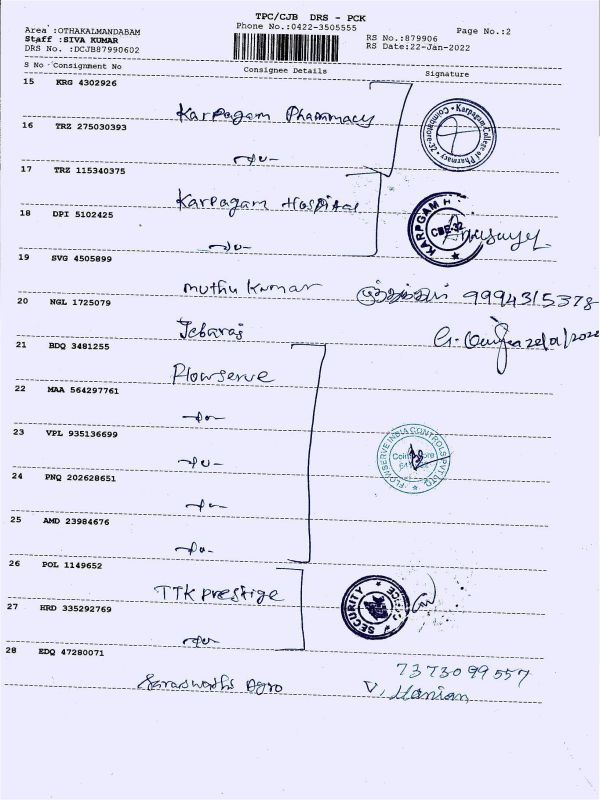 TPC/CJB DRS - PCK
Phone No.:0422-3505555
Page No.:2
Area :OTHAKALMANDABAM
Staff :SIVA KUMAR
DRS No. :DCJB87990602
RS No.:879906
RS Date:22-Jan-2022
S No Consignment No Consignee Details Signature
15 KRG 4302926
Karpagam Pharmacy
Karpagam College of Pharmacy Coimbatore-32
16 TRZ 275030393
-do-
17 TRZ 115340375
Karpagam Hospital
KARPAGAM H CBE-32
18 DPI 5102425
-do-
19 SVG 4505899
Muthu Kumar
9994315378
20 NGL 1725079
Jebaraj
21 BDQ 3481255
Flowserve
22 MAA 564297761
-do-
23 VPL 935136699
-do-
FLOWSERVE INDIA CONTROLS PVT LTD
Coimbatore
24 PNQ 202628651
-do-
25 AMD 23984676
-do-
26 POL 1149652
TTK prestige
SECURITY OFFICE
27 HRD 335292769
-do-
28 EDQ 47280071
7373099557
Saraswathi Agro V. Manian